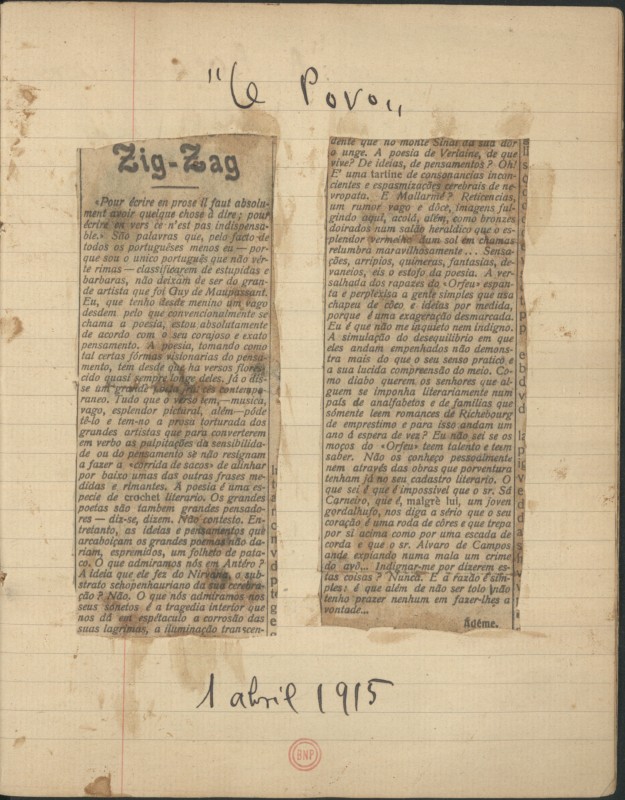 "O Povo"
Zig-Zag
«Pour écrire en prose il faut absolu-
ment avoir quelque chose à dire; pour
écrire en vers ce n'est pas indispensa-
ble.» São palavras que, pelo facto de
todos os portuguêses menos eu — por-
que sou o unico português que não vér-
te rimas — classificarem de estupidas e
barbaras, não deixam de ser do gran-
de artista que foi Guy de Maupassant.
Eu, que tenho desde menino um vago
desdem pelo que convencionalmente se
chama a poesia, estou absolutamente
de acordo com o seu corajoso e exato
pensamento. A poesia, tomando como
tal certas fórmas visionarias do pensa-
mento, tem desde que há versos flores-
cido quasi sempre longe deles. Já o dis-
se um grande francês contempo-
raneo. Tudo que o verso tem,—musica,
vago, esplendor pictural, além—póde
tê-lo e tem-no a prosa torturada dos
grandes artistas que para converterem
em verbo as palpitações da sensibilida-
de ou do pensamento se não resignam
a fazer a «corrida de sacos» de alinhar
por baixo umas das outras frases me-
didas e rimantes. A poesia é uma es-
pecie de crochet literario. Os grandes
poetas são tambem grandes pensado-
res — diz-se, dizem. Não contesto. En-
tretanto, as ideias e pensamentos que
arcaboiçam os grandes poemas não da-
riam, espremidos, um folheto de pata-
co. O que admiramos nós em Antéro?
A ideia que ele fez do Nirvana, o sub-
strato schopenhauriano da sua cerebra-
ção? Não. O que nós admiramos nos
seus sonetos é a tragedia interior que
nos dá em espétaculo a corrosão das
suas lagrimas, a iluminação transcen-
dente que no monte Sinai da sua dôr
o unge. A poesia de Verlaine, de que
vive? De ideias, de pensamentos? Oh!
E' uma tartine de consonancias incon-
cientes e espasmizações cerebrais de ne-
vropata. E Mallarmé? Reticencias,
um rumor vago e dôce, imagens ful-
gindo aqui, acolá, além, como bronzes
doirados num salão heraldico que o es-
plendor vermelho dum sol em chamas
relumbra maravilhosamente... Sensa-
ções, arripios, quimeras, fantasias, de-
vaneios, eis o estofo da poesia. A ver-
salhada dos rapazes do «Orfeu» espan-
ta e perplexisa a gente simples que usa
chapeu de côco e ideias por medida,
porque é uma exageração desmarcada.
Eu é que não me inquieto nem indigno.
A simulação de desequilibrio em que
eles andam empenhados não demons-
tra mais do que o seu senso pratico e
a sua lucida compreensão do meio. Co-
mo diabo querem os senhores que al-
guem se imponha literariamente num
país de analfabetos e de familias que
sómente leem romances de Richebourg
de emprestimo e para isso andam um
ano á espera de vez? Eu não sei se os
moços do «Orfeu» teem talento e teem
saber. Não os conheço pessoalmente
nem através das obras que porventura
tenham já no seu cadastro literario. O
que sei é que é impossivel que o sr. Sá
Carneiro, que é, malgrè lui, um joven
gordalhufo, nos diga a sério que o seu
coração é uma roda de côres e que trepa
por si acima como por uma escada de
corda e que o sr. Alvaro de Campos
ande expiando numa mala um crime
do avô... Indignar-me por dizerem es-
tas coisas? Nunca. E a razão é sim-
ples: é que além de não ser tolo não
tenho prazer nenhum em fazer-lhes a
vontade...
Adéme.
1 abril 1915
BNP